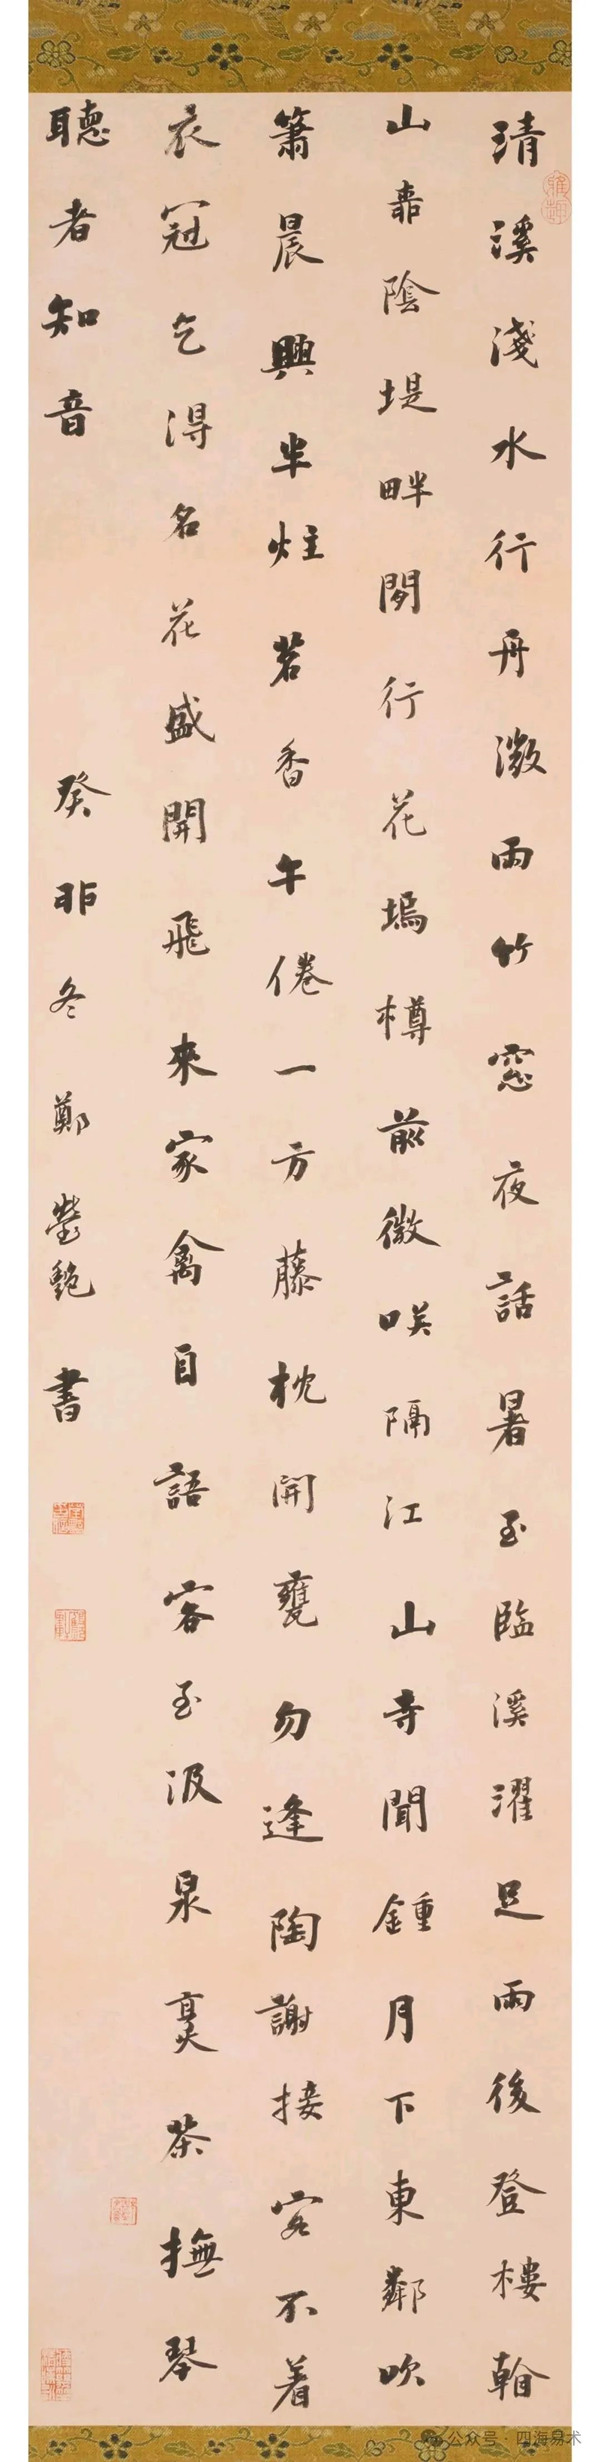 清溪淺水行舟微雨竹窓夜話暑至臨溪濯足雨後登樓看
山柳陰堤畔閒行花塢樽前微咲隔江山寺聞鍾月下東鄰吹
簫晨興半炷茗香午倦一方藤枕開甕勿逢陶謝接客不着
衣冠乞得名花盛開飛來家禽自語客至汲泉烹茶撫琴
聽者知音
癸卯冬鄭瑩艷書
公众号·四海易术